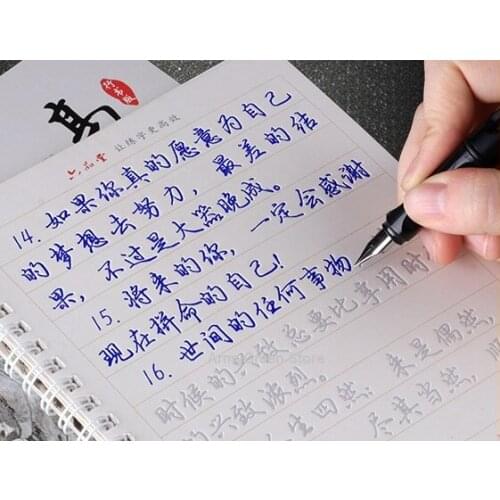 行书版
六品堂
让练字更高效
14. 如果你真的愿意为自己
的梦想去努力， 最差的结
果， 不过是大器晚成。
15. 将来的你， 一定会感谢
现在拼命的自己!
16. 世间的任何事物
时候的兴致总要比享用时候
的兴致浓烈。
来是偶然，
尽其当然，
Store